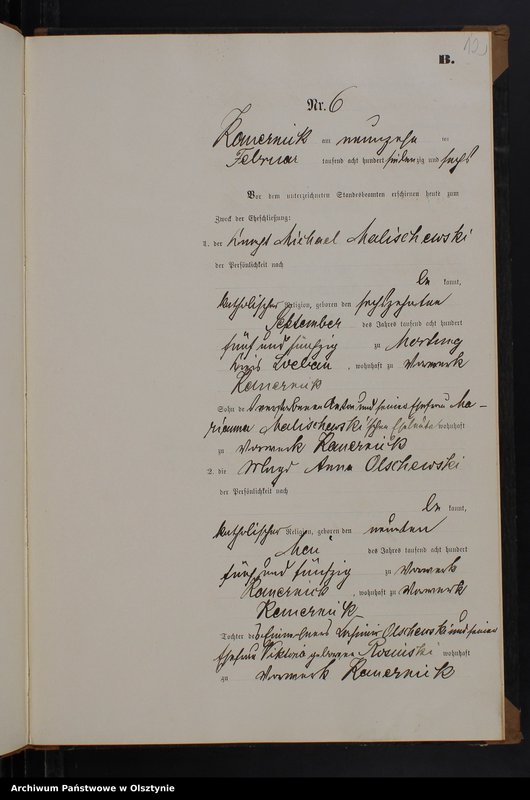 B.
Nr. 6
Kamerniik am neunzehn ten
Februar tausend acht hundert siebenzig und sechs
Vor dem unterzeichneten Standesbeamten erschienen heute zum
Zweck der Eheschließung:
1. der Knecht Michael Malischewski
der Persönlichkeit nach
be kannt,
katholischer Religion, geboren den sechszehnten
September des Jahres tausend acht hundert
fünf und fünfzig zu Mortung
Kreis Loebau, wohnhaft zu Vorwerk
Kamerniik
Sohn des verstorbenen Anton und seiner Ehefrau Ma-
rianna Malischewski'schen Eheleute wohnhaft
zu Vorwerk Kamerniik
2. die Magd Anna Olschewski
der Persönlichkeit nach
be kannt,
katholischer Religion, geboren den neunten
Mai des Jahres tausend acht hundert
fünf und fünfzig zu Vorwerk
Kamerniik, wohnhaft zu Vorwerk
Kamerniik
Tochter des Casimir Olschewski und seiner
Ehefrau Viktoria geborene wohnhaft
zu Vorwerk Kamerniik
Archiwum Państwowe w Olsztynie